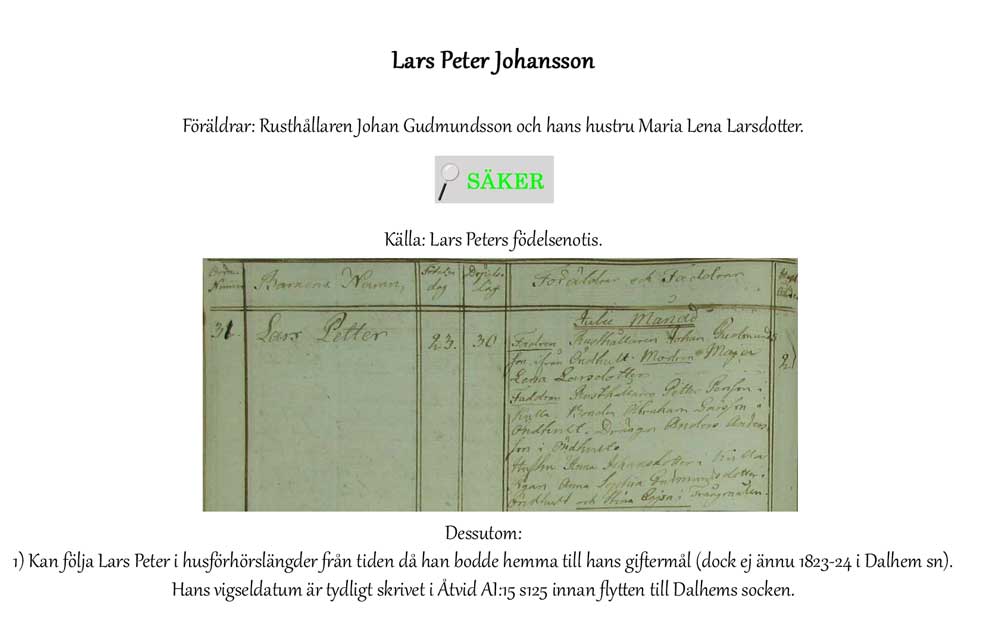 Lars Peter Johansson
Föräldrar: Rusthållaren Johan Gudmundsson och hans hustru Maria Lena Larsdotter.
SÄKER
Källa: Lars Peters födelsenotis.
Barnens Namn,
dag
Föräldrar och Faddrar
Julii Månad
31. Lars Petter 23. 30 Fadren Rusthållaren Johan Gudmunds
son ifrån Öndhult. Modren Maja
Lena Larsdotter
Faddrar Rusthållaren Petter
Bonden Abraham
Öndhult. Drängen Anders Anders
son i Öndhult.
Anna Johansdotter i
Pigan Anna Sophia Gudmundsdotter i
Öndhult och Stina Cajsa i
Dessutom:
1) Kan följa Lars Peter i husförhörslängder från tiden då han bodde hemma till hans giftermål (dock ej ännu 1823-24 i Dalhem sn).
Hans vigseldatum är tydligt skrivet i Åtvid AI:15 s125 innan flytten till Dalhems socken.